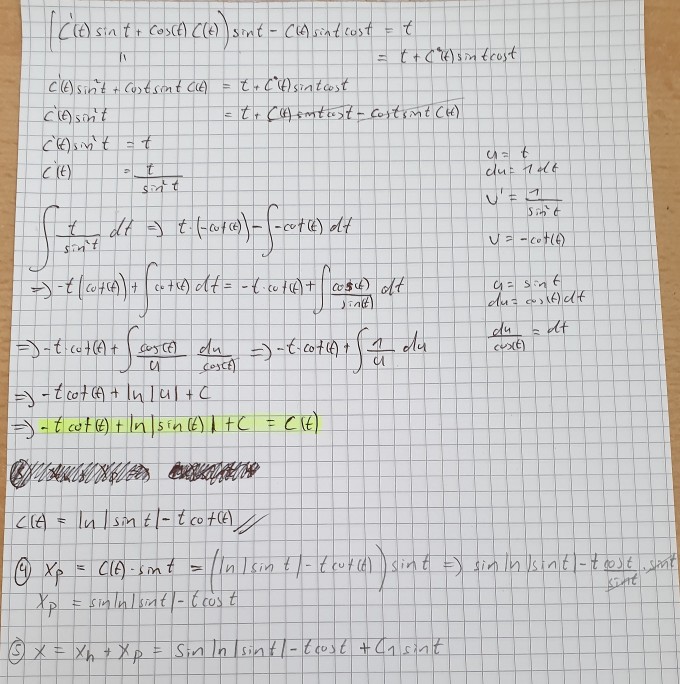 [C'(t) sin t + cos(t) C(t)] sin t - C(t) sin t cos t = t
= t + C(t) sin t cos t
C'(t) sin²t + cos t sin t C(t) = t + C(t) sin t cos t
C'(t) sin²t = t + C(t) sin t cos t - cos t sin t C(t)
C'(t) sin²t = t
C'(t) = t / sin²t
u = t
du = 1 dt
v' = 1 / sin²t
v = -cot(t)
∫ t / sin²t dt => t·(-cot(t)) - ∫ -cot(t) dt
=> -t(cot(t)) + ∫ cot(t) dt = -t·cot(t) + ∫ cos(t) / sin(t) dt
u = sin t
du = cos(t) dt
du / cos(t) = dt
=> -t·cot(t) + ∫ cos(t) / u du / cos(t) => -t·cot(t) + ∫ 1 / u du
=> -t cot(t) + ln|u| + C
=> -t cot(t) + ln|sin(t)| + C = C(t)
C(t) = ln|sin t| - t cot(t)
④ Xp = C(t)·sin t = (ln|sin t| - t cot(t)) sin t => sin ln|sin t| - t cos t / sin t · sin t
Xp = sin ln|sin t| - t cos t
⑤ X = Xh + Xp = sin ln|sin t| - t cos t + C1 sin t